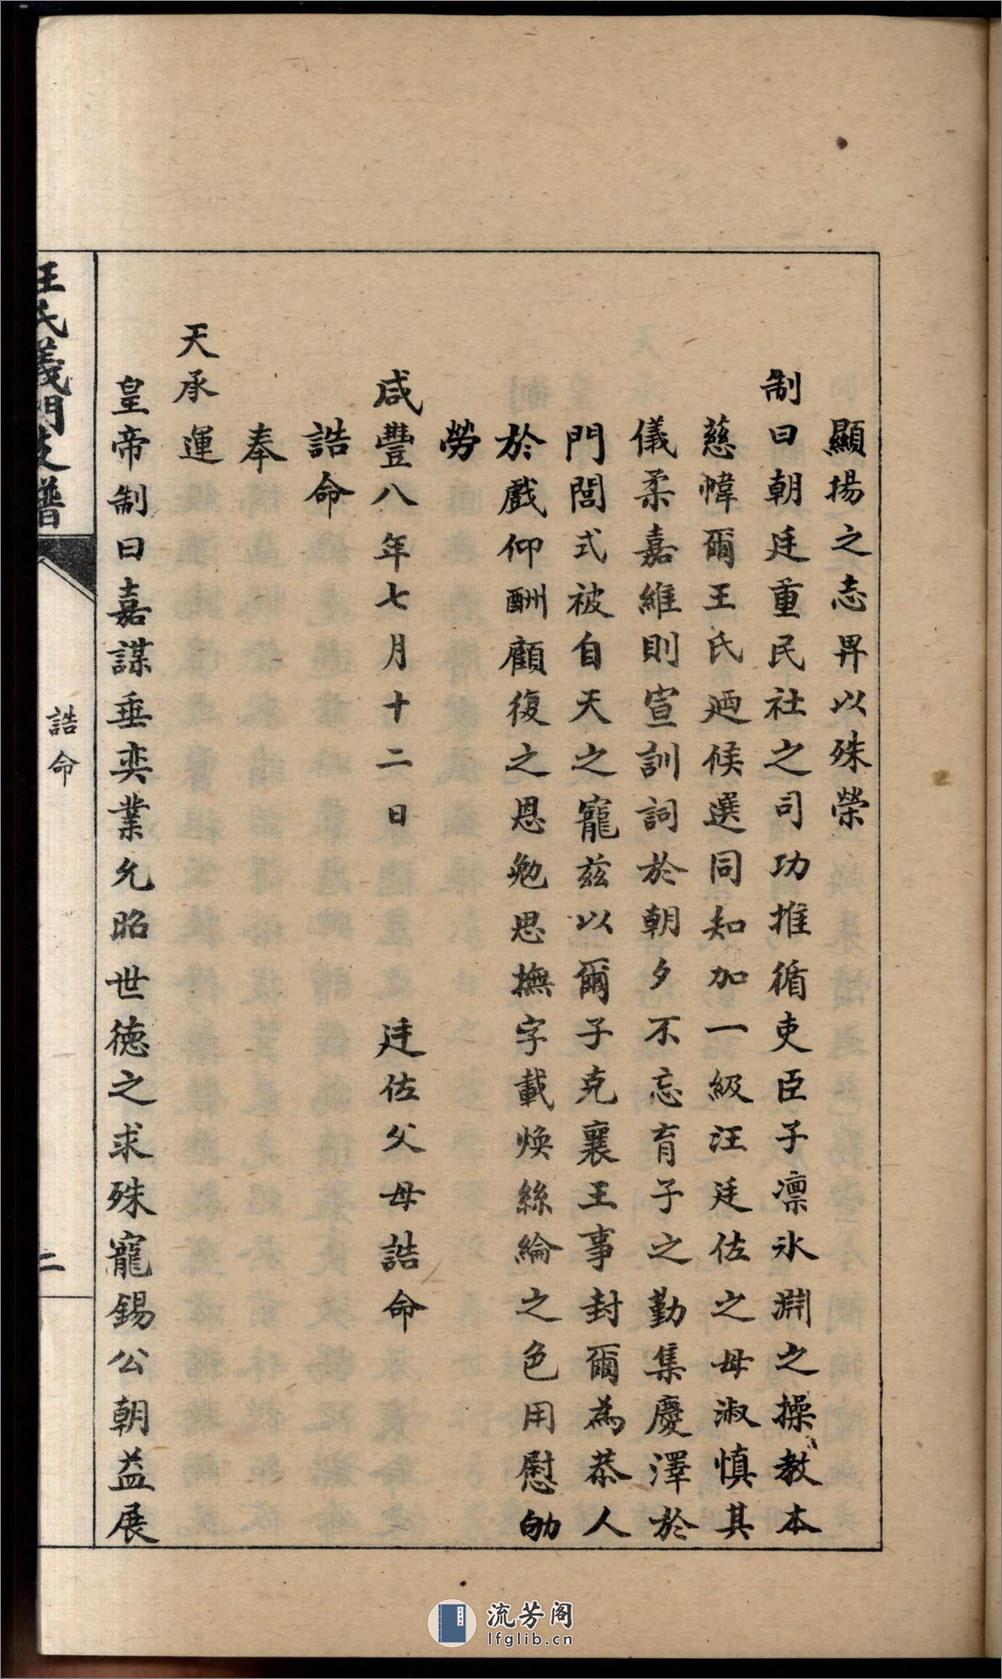 顯揚之志畀以殊榮
制曰朝廷重民社之司功推循吏臣子凛冰淵之操教本
慈幃爾王氏廼候選同知加一級汪廷佐之母淑慎其
儀柔嘉維則宣訓詞於朝夕不忘育子之勤集慶澤於
門閭式被自天之寵茲以爾子克襄王事封爾為恭人
於戲仰酬顧復之恩勉思撫字載煥絲綸之色用慰劬
勞
咸豐八年七月十二日 廷佐父母誥命
誥命
奉
天承運
皇帝制曰嘉謀垂奕業允昭世德之求殊寵錫公朝益展
汪氏義門支譜
誥命
二
流芳阁
lfglib.cn